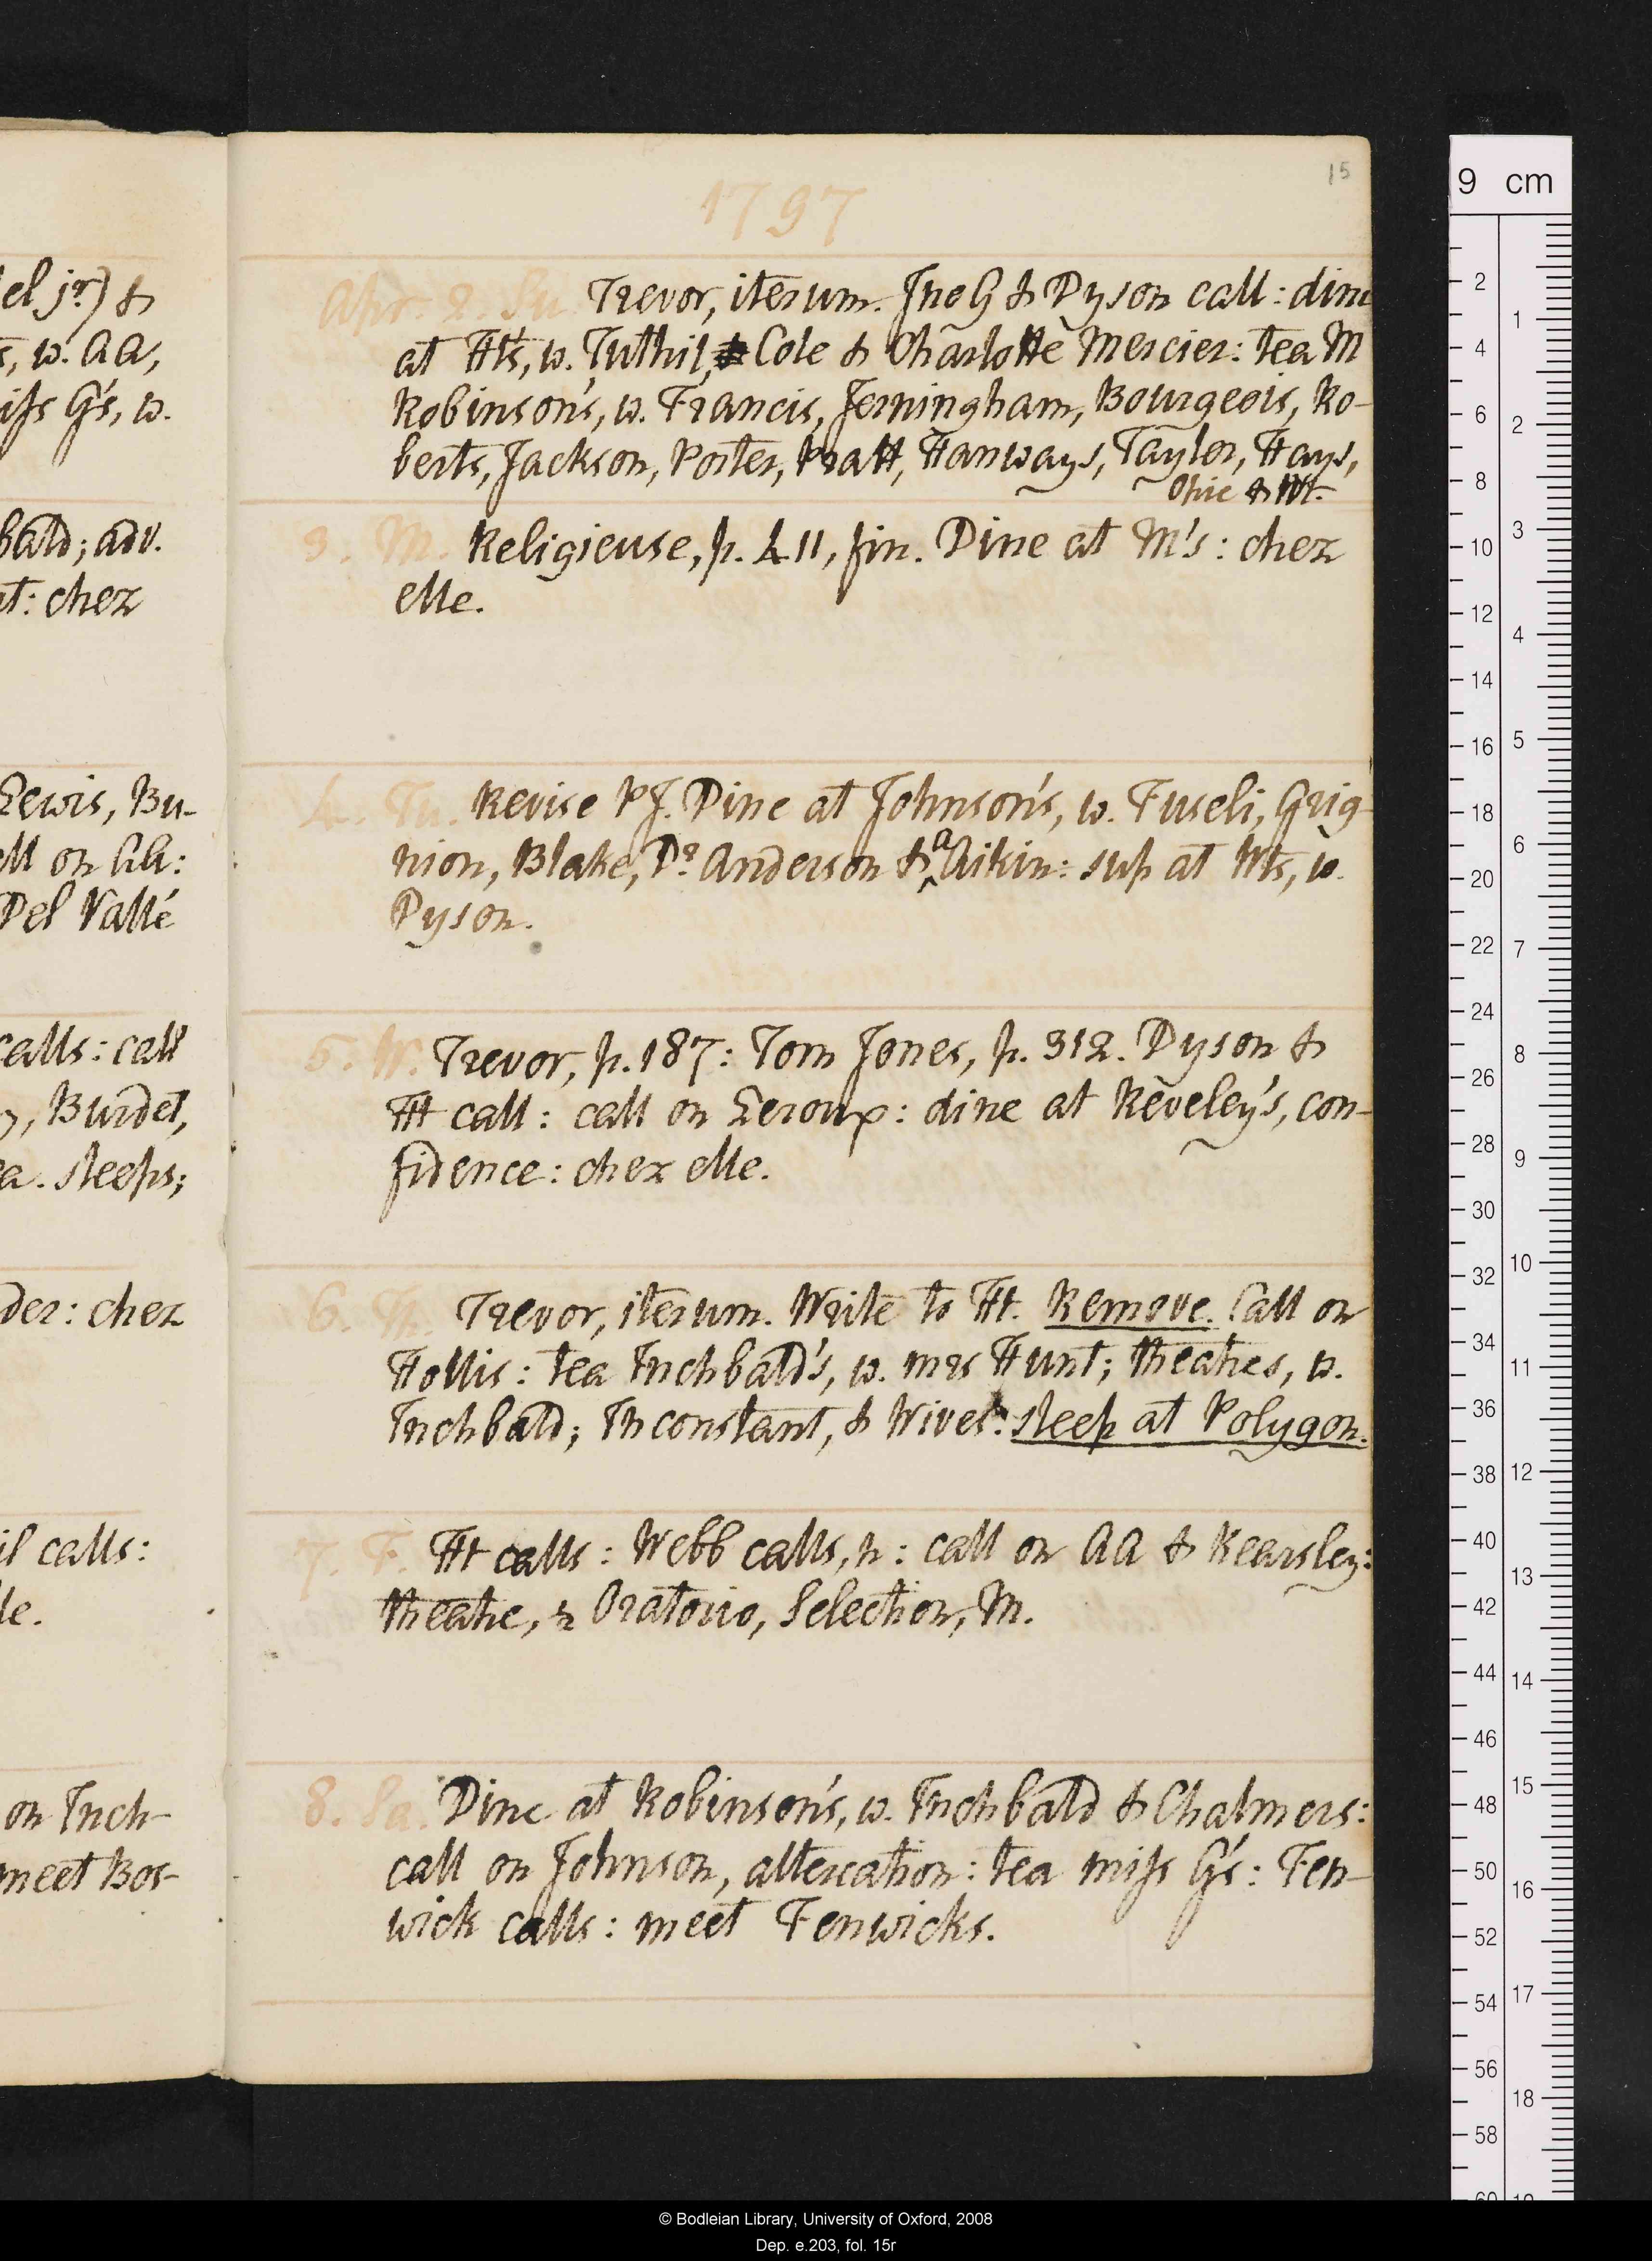 15
1797
el jr) &
s, w. AA,
iss G's, w.
bald; adv.
at: chez
Lewis, Bu-
ll on AA:
Del Vallé
calls: call
y, Burdet,
ea. sleeps;
der: chez
il calls:
lle.
on Inch-
meet Bos-
Apr. 2. Su. Trevor, iterum. Jno G & Dyson call: dine
at Ht's, w. Tuthil, Cole & Charlotte Mercier: tea M
Robinson's, w. Francis, Jerningham, Bourgeois, Ro-
berts, Jackson, Porter, Pratt, Hanways, Taylor, Hays,
Opie & Wt.
3. M. Religieuse, p. 411, fin. Dine at M's: chez
elle.
4. Tu. Revise PJ. Dine at Johnson's, w. Fuseli, Grig-
nion, Blake, Dr Anderson & A Aikin: sup at Wt's, w.
Dyson.
5. W. Trevor, p. 187: Tom Jones, p. 312. Dyson &
Ht call: call on Leroux: dine at Reveley's, con-
fidence: chez elle.
6. Th. Trevor, iterum. Write to Ht. Remove. Call on
Hollis: tea Inchbald's, w. mrs Hunt; theatres, w.
Inchbald; Inconstant, & Wives: sleep at Polygon.
7. F. Ht calls: Webb calls, n: call on AA & Kearsley:
theatre, Oratorio, Selection, M.
8. Sa. Dine at Robinson's, w. Inchbald & Chalmers:
call on Johnson, altercation: tea miss G's: Fen-
wick calls: meet Fenwicks.
9 cm
2
4
6
8
10
12
14
16
18
20
22
24
26
28
30
32
34
36
38
40
42
44
46
48
50
52
54
56
58
60
1
2
3
4
5
6
7
8
9
10
11
12
13
14
15
16
17
18
© Bodleian Library, University of Oxford, 2008
Dep. e.203, fol. 15r